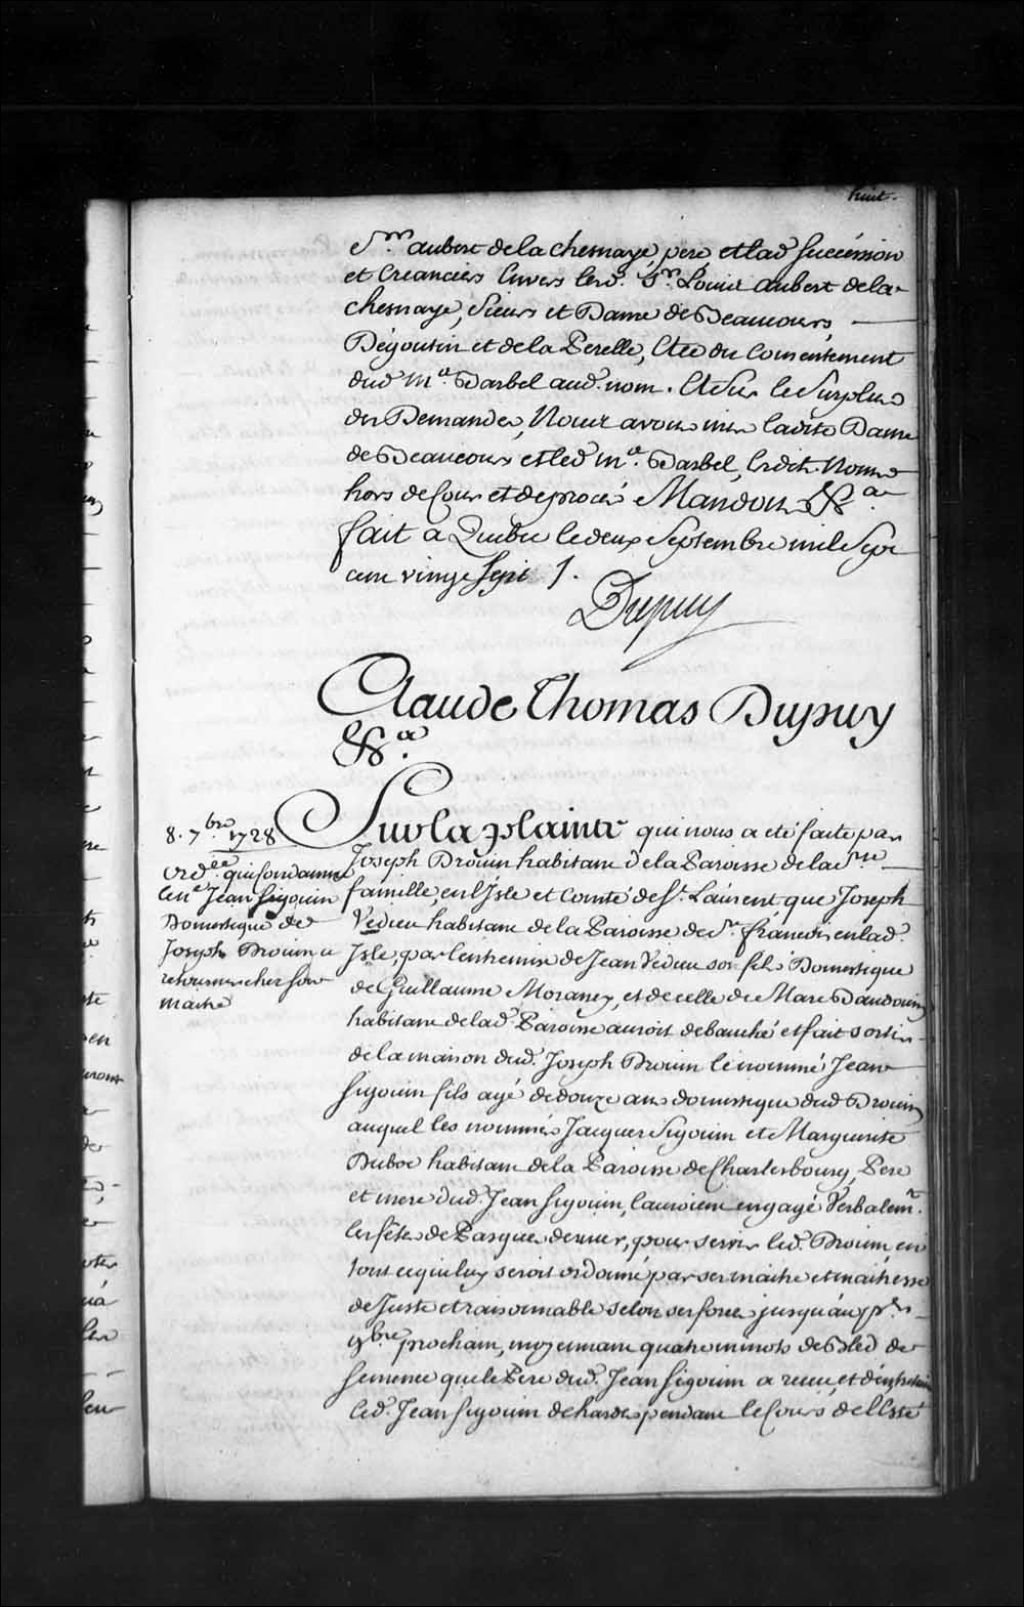 huit.
Sr. aubert de la chesnaye, pere, et lad succession
et Creanciers Envers led. Sr. Louis aubert de la
chesnaye, Sieurs et Dame de Beaucours,
Dégoutin et de la Perelle, et ce du Consentement
dud me. Barbel aud. nom. Et sur le surplus
des Demandes, Nous avons mis ladite Dame
de Beaucours et led me. Barbel, esdits Noms
hors de Cour et de procés Mandons &a.
fait a Quebec le deux Septembre mil Sept
cent vingt sept /.
Dupuy
Claude Thomas Dupuy
&a.
Sur la plainte qui nous a eté faite par
Joseph Drouin habitant de la Paroisse de la Ste
famille, en l'Isle et Comté de St. Laurent, que Joseph
Vedieu habitant de la Paroisse de St. francois en lad.
Isle, par l'entremise de Jean Vedieu son fils Domestique
de Guillaume Morancy, et de celle de Marc Baudouin
habitant de lad. Paroisse auroit debauché et fait sortir
de la maison dud. Joseph Drouin le nommé Jean
Sigouin fils agé de douze ans domestique dud Drouin
auquel les nommés Jacques Sigouin et Marguerite
Duboc habitans de la Paroisse de Charlesbourg, Pere
et mere dud. Jean Sigouin, l'auroient engagé Verbalemt.
les fêtes de Pasques dernier, pour servir led. Drouin, en
tout ce qui luy seroit ordonné par ses maitre et maitresse
de Juste et raisonnable selon ses forces jusqu'au pr.
9bre prochain, moyennant quatre minots de Bled de
semence que le Pere dud. Jean Sigouin a receu, et d'entretenir
led. Jean Sigouin de hardes pendant le Cours de l'Esté
8. 7bre 1728
Ordce. qui condamne
le né Jean Sigouin
Domestique de
Joseph Drouin a
retourner chez son
maitre